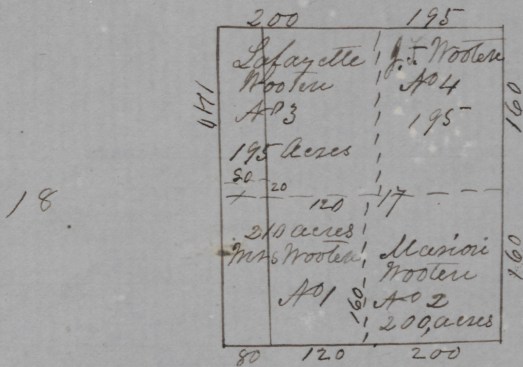 200 195
Lafayette
Wooten
No 3
195 acres
J. T. Wooten
No 4
195
140
160
18
50
20
120
17
210 acres
Mrs Wooten
No 1
160
Marion
Wooten
No 2
200, acres
160
80 120 200